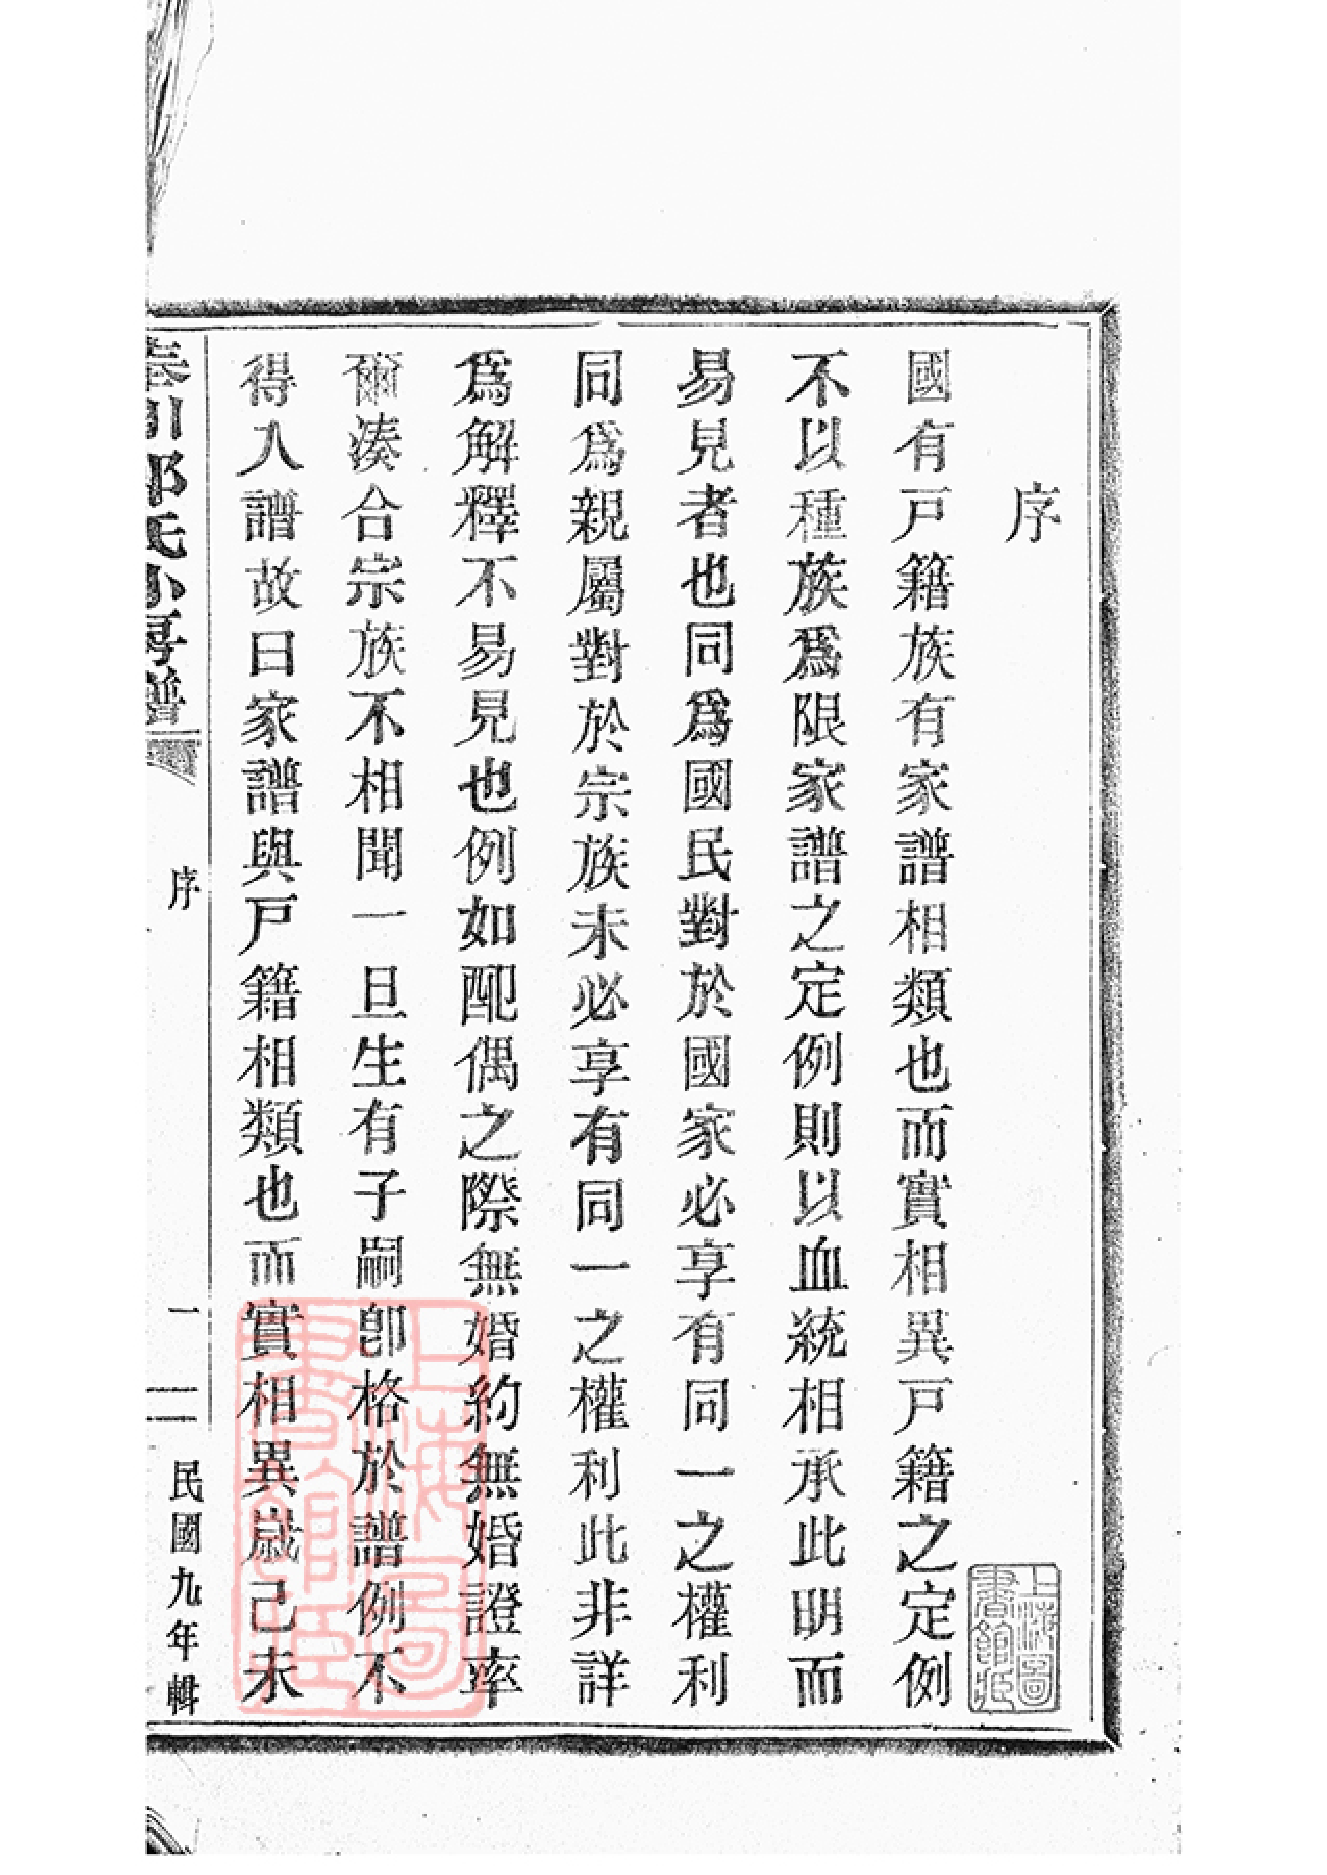 序
國有戸籍族有家譜相類也而實相異戸籍之定例
不以種族爲限家譜之定例則以血統相承此明而
易見者也同爲國民對於國家必享有同一之權利
同爲親屬對於宗族未必享有同一之權利此非詳
爲解釋不易見也例如配偶之際無婚約無婚證率
爾湊合宗族不相聞一旦生有子嗣卽格於譜例不
得入譜故曰家譜與戸籍相類也而實相異歲己未
氏小房譜
序
一
民國九年輯
上海圖書館藏
上海圖書館藏